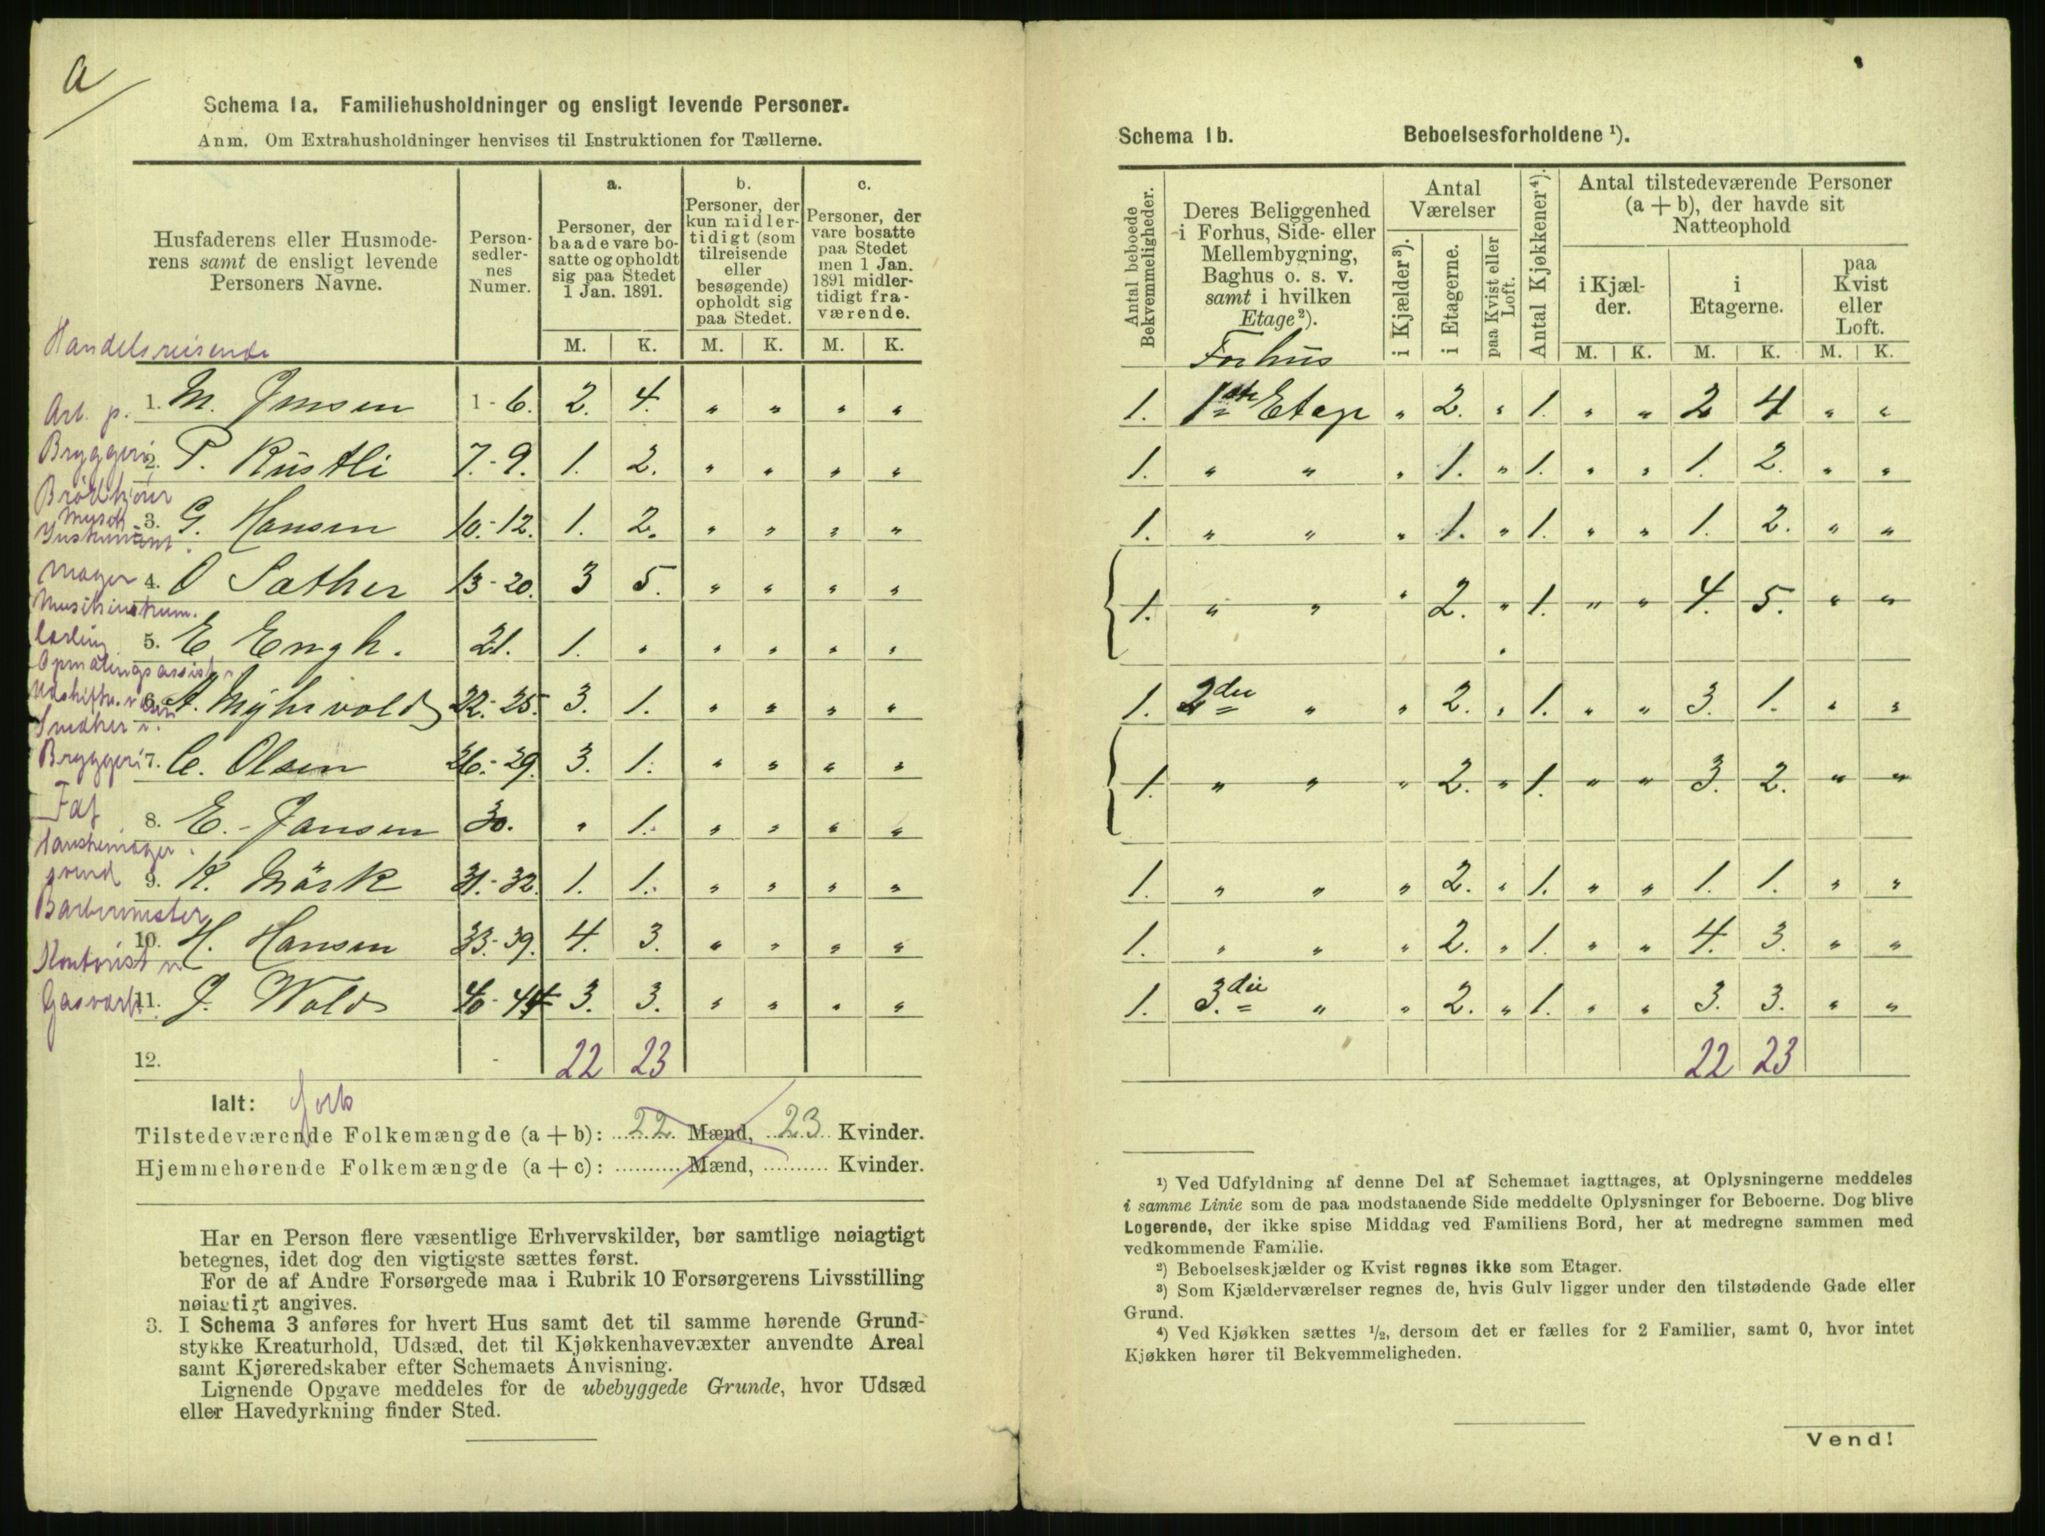 a
Schema 1a. Familiehusholdninger og ensligt levende Personer.
Anm. Om Extrahusholdninger henvises til Instruktionen for Tællerne.
Husfaderens eller Husmoderens samt de ensligt levende Personers Navne. | Personsedlernes Numer. | a. Personer, der baade vare bosatte og opholdt sig paa Stedet 1 Jan. 1891. | b. Personer, der kun midlertidigt (som tilreisende eller besøgende) opholdt sig paa Stedet. | c. Personer, der vare bosatte paa Stedet men 1 Jan. 1891 midlertidigt fraværende.
M. K. M. K. M. K.
Handelsreisende
1. M. Jensen 1-6. 2. 4. " " " "
Arb. p. Bryggeri
2. P. Rustli 7.-9. 1. 2. " " " "
Brödkjörer
3. G. Hansen 10.-12. 1. 2. " " " "
Musik Instrument mager
4. O Sæther 13-20. 3 5. " " " "
Musikinstrum. lærling
5. E Engh. 21. 1. " " " " "
Opmålingsassist.
6. A. Myhrvold 22.-25. 3. 1. " " " "
Snedker
Bryggeri
7. C. Olsen 26.-29. 3. 1. " " " "
8. E. Jansen 30. " 1. " " " "
Hanskemager svend
9. K. Mörk 31.-32. 1. 1. " " " "
Barbermester
10. H. Hansen 33.-39. 4. 3. " " " "
Kontorist v
Gasværk
11. J. Wold 40-44 3. 3. " " " "
12. - 22 23
Ialt:
Tilstedeværende Folkemængde (a + b): 22. Mænd, 23 Kvinder.
Hjemmehørende Folkemængde (a + c): .......... Mænd, .......... Kvinder.
Har en Person flere væsentlige Erhvervskilder, bør samtlige nøiagtigt
betegnes, idet dog den vigtigste sættes først.
For de af Andre Forsørgede maa i Rubrik 10 Forsørgerens Livsstilling
nøiagtigt angives.
3. I Schema 3 anføres for hvert Hus samt det til samme hørende Grund-
stykke Kreaturhold, Udsæd, det til Kjøkkenhavevæxter anvendte Areal
samt Kjøreredskaber efter Schemaets Anvisning.
Lignende Opgave meddeles for de ubebyggede Grunde, hvor Udsæd
eller Havedyrkning finder Sted.
Schema 1b. Beboelsesforholdene ¹).
Antal beboede Bekvemmeligheder. | Deres Beliggenhed i Forhus, Side- eller Mellembygning, Baghus o. s. v. samt i hvilken Etage²). | Antal Værelser | i Kjælder³). | i Etagerne. | paa Kvist eller Loft. | Antal Kjøkkener⁴). | Antal tilstedeværende Personer (a + b), der havde sit Natteophold | i Kjælder. | i Etagerne. | paa Kvist eller Loft.
M. K. M. K. M. K.
Forhus
1. 1ste Etage " 2. " 1. " " 2 4 " "
1. " " " 1. " 1. " " 1. 2. " "
1. " " " 1. " 1. " " 1. 2. " "
1. " " " 2. " 1. " " 4. 5. " "
1. 2den " " 2. " 1. " " 3. 1. " "
1. " " " 2. " 1. " " 3. 2. " "
1. " " " 2. " 1. " " 1. 1. " "
1. " " " 2. " 1. " " 4. 3. " "
1. 3die " " 2. " 1. " " 3. 3. " "
22 23
¹) Ved Udfyldning af denne Del af Schemaet iagttages, at Oplysningerne meddeles
i samme Linie som de paa modstaaende Side meddelte Oplysninger for Beboerne. Dog blive
Logerende, der ikke spise Middag ved Familiens Bord, her at medregne sammen med
vedkommende Familie.
²) Beboelseskjælder og Kvist regnes ikke som Etager.
³) Som Kjælderværelser regnes de, hvis Gulv ligger under den tilstødende Gade eller
Grund.
⁴) Ved Kjøkken sættes 1/2, dersom det er fælles for 2 Familier, samt 0, hvor intet
Kjøkken hører til Bekvemmeligheden.
Vend!